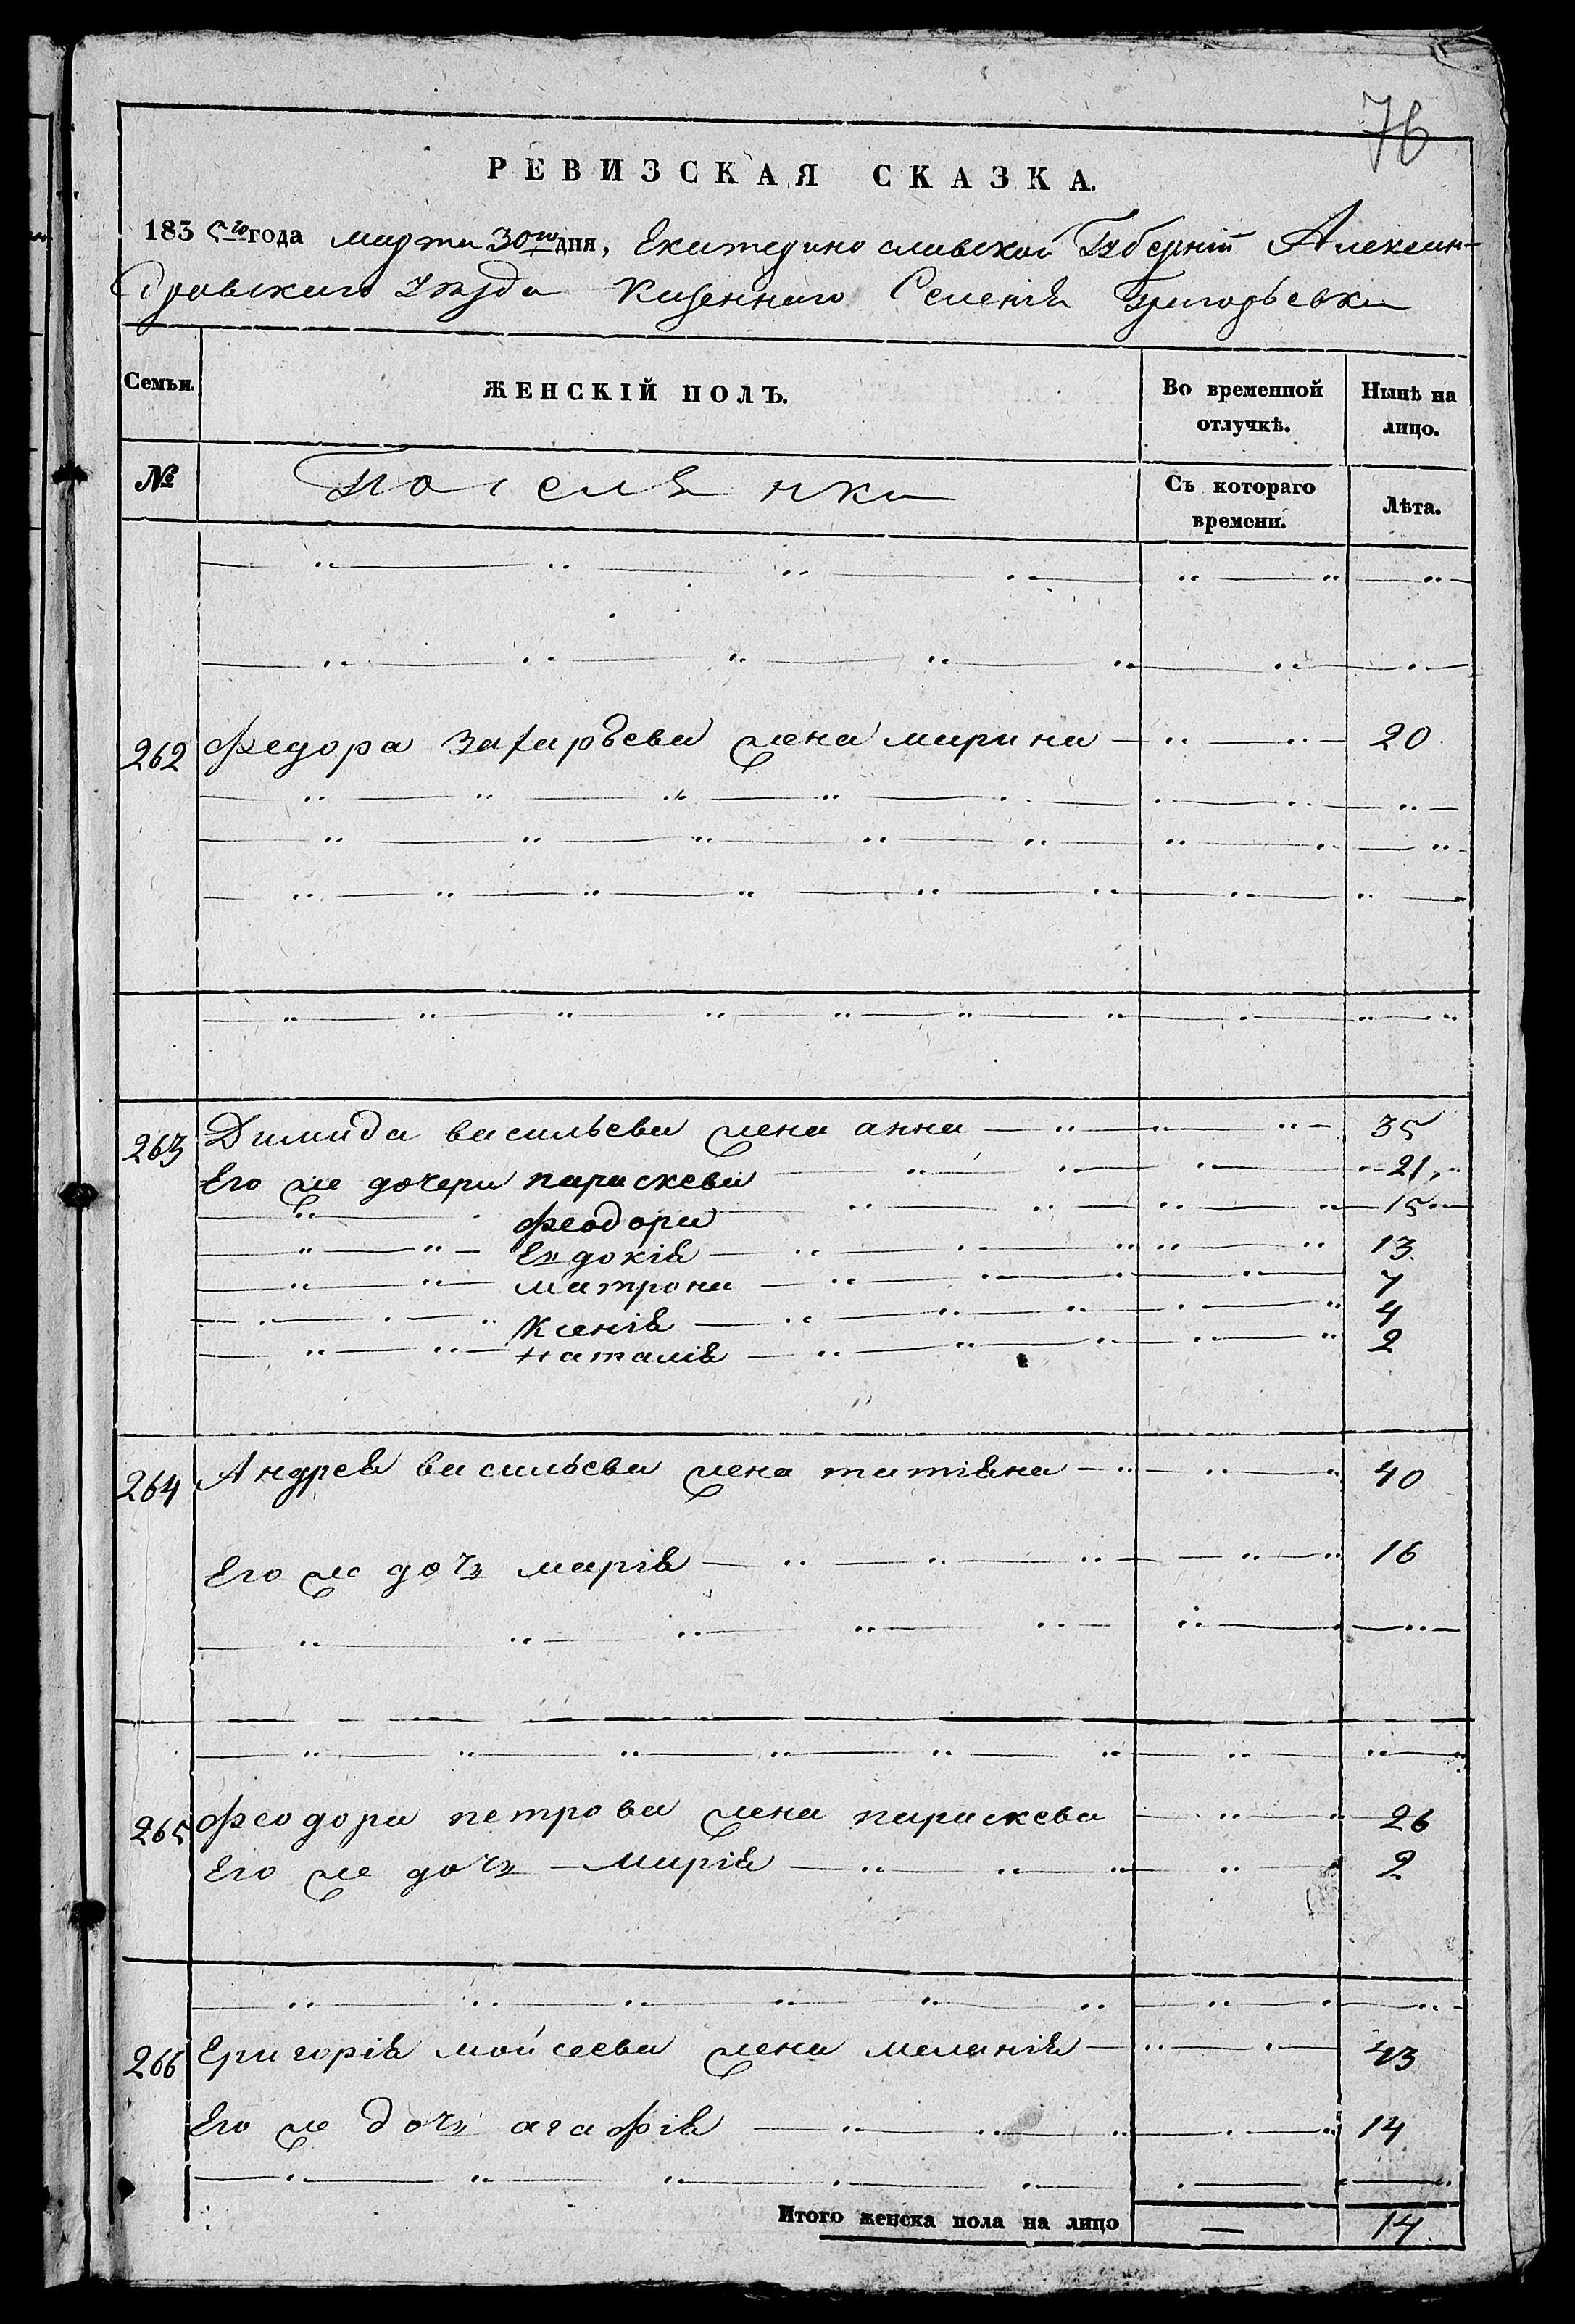 76
РЕВИЗСКАЯ СКАЗКА.
1835го года марта 30го дня, Екатеринославской Губерніи Алексан-
дровскаго Уезда Казеннаго Селенія Григорьевки
Семьи. ЖЕНСКІЙ ПОЛЪ. Во временной отлучкѣ. Нынѣ на лицо.
№ Поселянки Съ котораго времени. Лѣта.
262 Федора Захарьева жена марина 20
263 Димида васильева жена анна 35
Его же дочери параскева 21
феодора 15
Евдокія 13
матрона 7
Ксенія 4
наталія 2
264 Андрея васильева жена татіяна 40
Его же дочь марія 16
265 Феодора петрова жена параскева 26
Его же дочь Марія 2
266 Григорія мойсеева жена меланія 43
Его же дочь агафія 14
Итого женска пола на лицо — 14